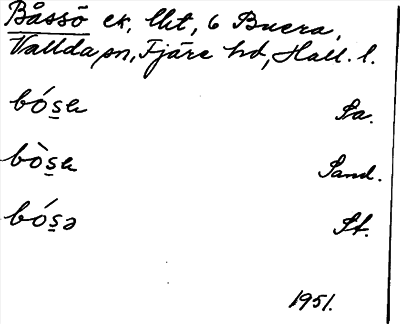 Båssö ek, Ukt, 6 Buera,
Vallda sn, Fjäre hd, Hall. l.
bós̱ Sa.
bòs̱ Sand.
bós̱ə St.
1951.